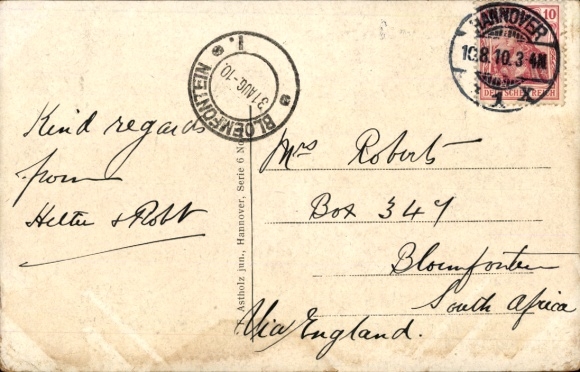 HANNOVER
10.8.10.3-4N
1 X
10
DEUTSCHES REICH
BLOEMFONTEIN
1.
31 AUG. 10.
Kind regards
from
& Robt
Mrs Roberts
Box 347
Bloemfontein
South Africa
Via England.
Astholz jun., Hannover, Serie 6 No